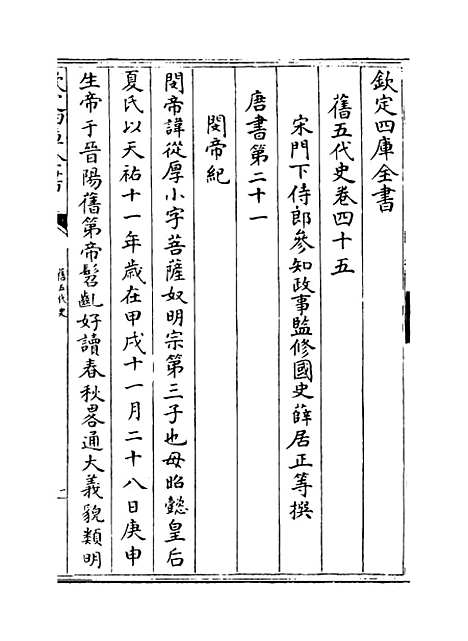 欽定四庫全書
舊五代史卷四十五
宋門下侍郎參知政事監修國史薛居正等撰
唐書第二十一
閔帝紀
閔帝諱從厚小字菩薩奴明宗第三子也母昭懿皇后
夏氏以天祐十一年歲在甲戌十一月二十八日庚申
生帝于晉陽舊第帝髫齓好讀春秋畧通大義貌類明
舊五代史